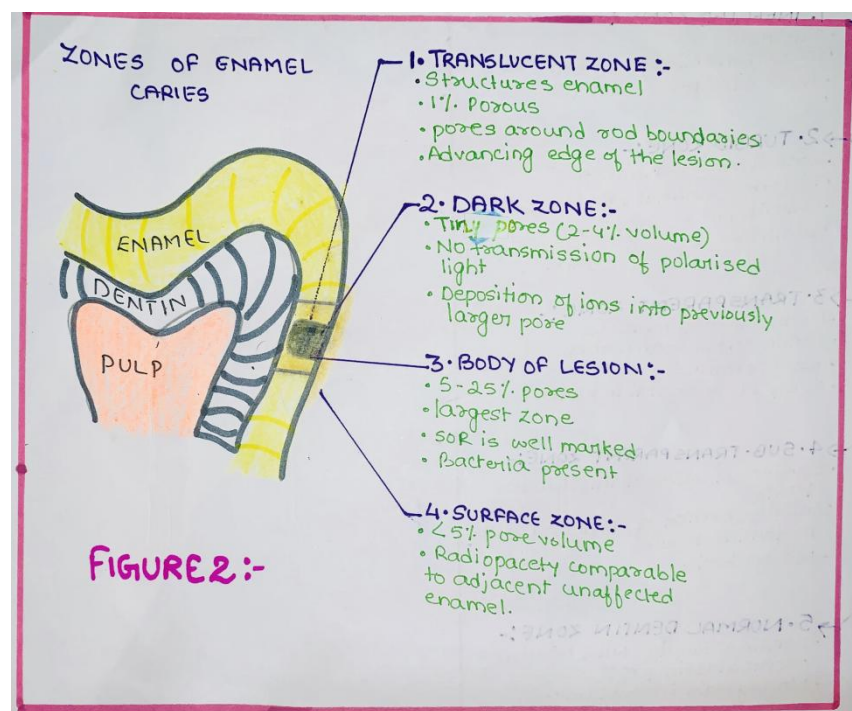 ZONES OF ENAMEL
CARIES
1. TRANSLUCENT ZONE :-
• Structures enamel
• 1% Porous
• pores around rod boundaries
• Advancing edge of the lesion.
2. DARK ZONE:-
• Tiny pores (2-4% volume)
• No transmission of polarised
light
• Deposition of ions into previously
larger pore
3. BODY OF LESION:-
• 5-25% pores
• largest zone
• SOR is well marked
• Bacteria present
4. SURFACE ZONE:-
• <5% pore volume
• Radiopacety comparable
to adjacent unaffected
enamel.
ENAMEL
DENTIN
PULP
FIGURE 2:-